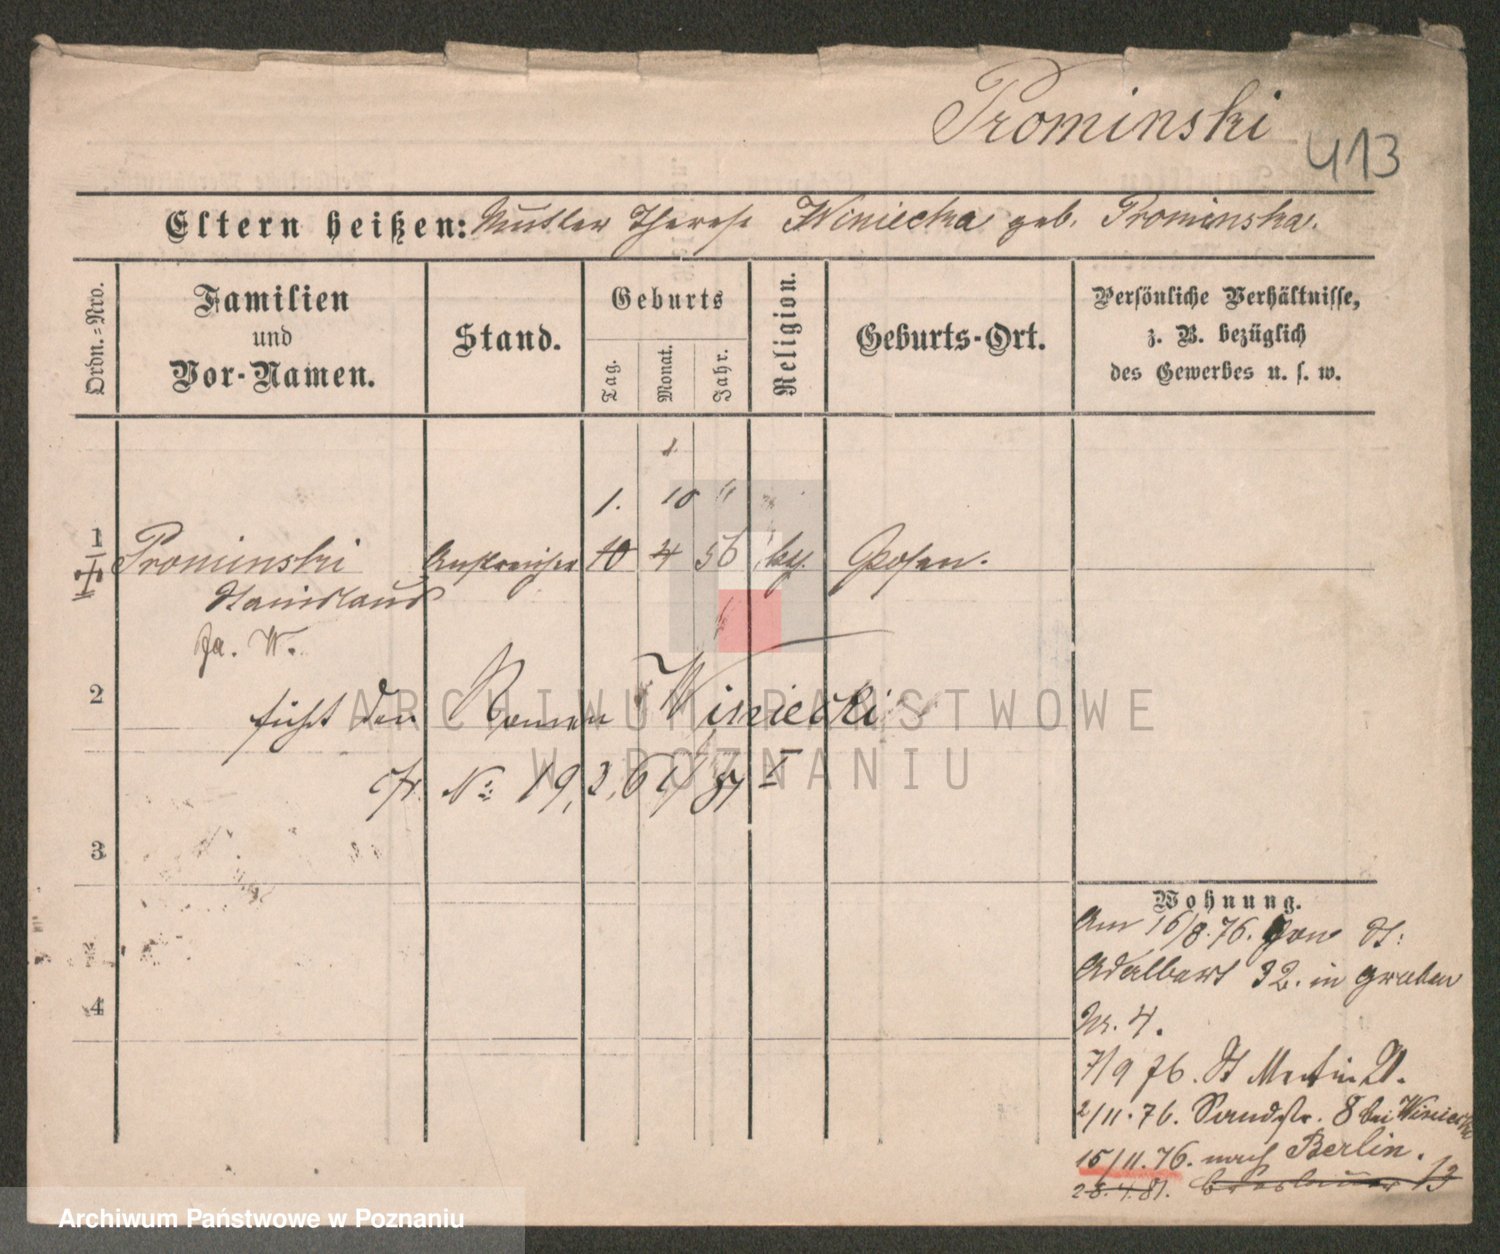 Prominski
413
Eltern heißen: Mutter Therese Winiecka geb. Prominska.
Ordn.-Nro.
Familien
und
Vor-Namen.
Stand.
Geburts
Tag.
Monat.
Jahr.
Religion.
Geburts-Ort.
Persönliche Verhältnisse,
z. B. bezüglich
des Gewerbes u. s. w.
1. 10 "
1 Prominski Anstreicher 10 4 56 k. Posen.
Stanislaus
W.
2
führt den Namen Winiecki
cfr. No 19,261/87 I
3
4
Wohnung.
Am 16/8.76. von St:
Adalbert 32. in Graben
Nr. 4.
7/9 76. St Martin 21.
2/11.76. Sandstr. 8 bei Winiecka
15/11.76. nach Berlin.
28.4.81. 13
ARCHIWUM PAŃSTWOWE
W POZNANIU
Archiwum Państwowe w Poznaniu